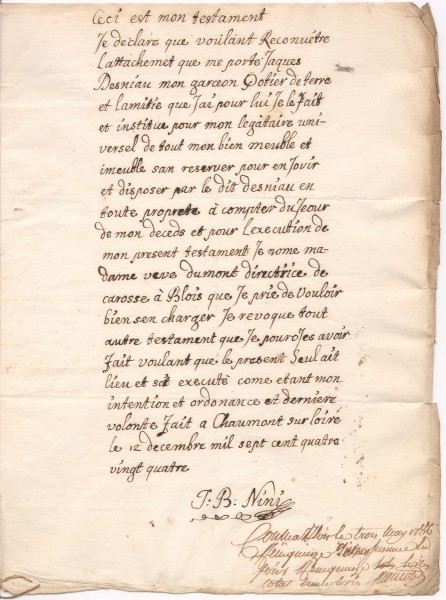 Ceci est mon testament
Je déclare que voulant Reconuétre
Lattachemet que me porte Jaques
Desniau mon garceon Potier de terre
et lamitié que Jai pour lui Je le fait
et institue pour mon légataire uni-
versel de tout mon bien meuble et
imeuble san reserver pour en Jovir
et disposer par le dit desniau en
toute propreté à compter du Jeour
de mon deceds et pour lexecution de
mon present testament Je nome ma-
dame veve dumont directrice de
carosse à Blois que Je prie de vouloir
bien sen charger Je revoque tout
autre testament que Je pouroJes avoir
fait voulant que le present seul ait
lieu et soit executé come etant mon
intention et ordonance et derniere
volonté fait a Chaumont sur loire
le 12 decembre mil sept cent quatre
vingt quatre
J: B: Nini
le trois may